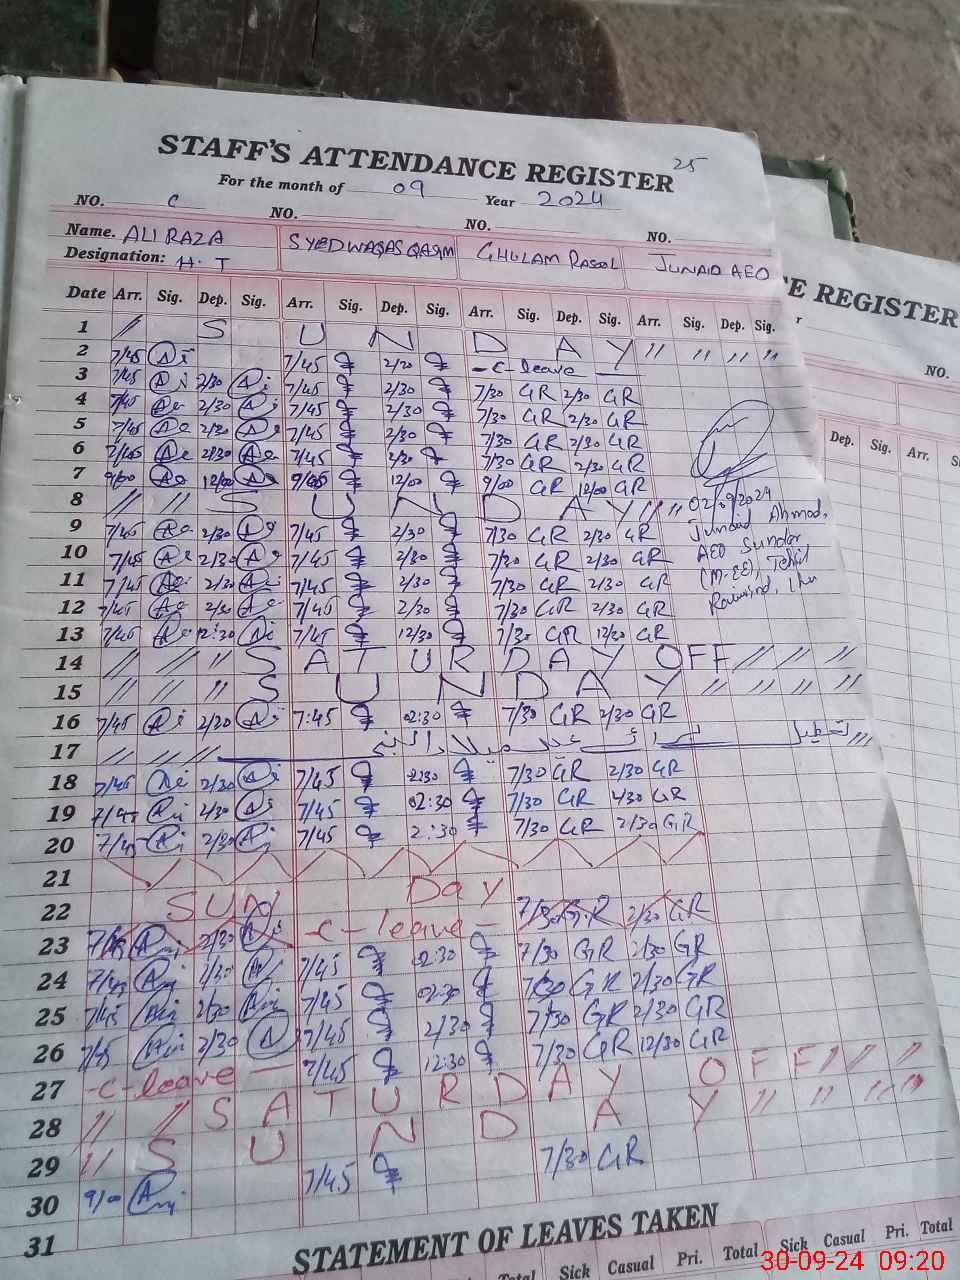 STAFF'S ATTENDANCE REGISTER 25
For the month of 09 Year 2024
NO. C NO. NO. NO.
Name. ALI RAZA SYED WAQAS QASIM GHULAM RASOOL JUNAID AEO
Designation: H.T
Date Arr. Sig. Dep. Sig. Arr. Sig. Dep. Sig. Arr. Sig. Dep. Sig. Arr. Sig. Dep. Sig.
1 // S U N D A Y // // // //
2 7/45 7/45 2/20 -C-leave-
3 7/45 2/30 7/45 2/30 7/30 GR 2/30 GR
4 7/45 2/30 7/45 2/30 7/30 GR 2/30 GR
5 7/45 2/30 7/45 2/30 7/30 GR 2/30 GR
6 7/45 2/30 7/45 2/30 7/30 GR 2/30 GR
7 9/00 12/00 9/05 12/00 9/00 GR 12/00 GR
8 // // S U N D A Y // //
02/09/2024
Junaid Ahmad,
AEO Sunder
(M-EE), Tehsil
Raiwind, Lhr
9 7/45 2/30 7/45 2/30 7/30 GR 2/30 GR
10 7/45 2/30 7/45 2/30 7/30 GR 2/30 GR
11 7/45 2/30 7/45 2/30 7/30 GR 2/30 GR
12 7/45 2/30 7/45 2/30 7/30 GR 2/30 GR
13 7/45 12:30 7/45 12/30 7/30 GR 12/30 GR
14 // // // S A T U R D A Y OFF // // // //
15 // // // S U N D A Y // // // //
16 7/45 2/20 7:45 02:30 7/30 GR 2/30 GR
17 // // // تعطیل عید میلاد النبی //
18 7/45 2/30 7/45 2:30 7/30 GR 2/30 GR
19 7/45 4/30 7/45 02:30 7/30 GR 4/30 GR
20 7/45 2/30 7/45 2:30 7/30 GR 2/30 GR
21
22 SUN Day 7/30 GR 2/30 GR
23 7/45 2/30 -C-leave- 7/30 GR 2/30 GR
24 7/45 2/30 7/45 02:30 7/30 GR 2/30 GR
25 7/45 2/30 7/45 02:30 7/30 GR 2/30 GR
26 7/45 2/30 7/45 2/30 7/30 GR 12/30 GR
27 -C-leave- 7/45 12:30
28 // // S A T U R D A Y O F F // // //
29 // S U N D A Y // // // //
30 9/00 7/45 7/30 GR
31
STATEMENT OF LEAVES TAKEN
Sick Casual Pri. Total Sick Casual Pri. Total
CE REGISTER
r
NO.
Dep. Sig. Arr.
30-09-24 09:20